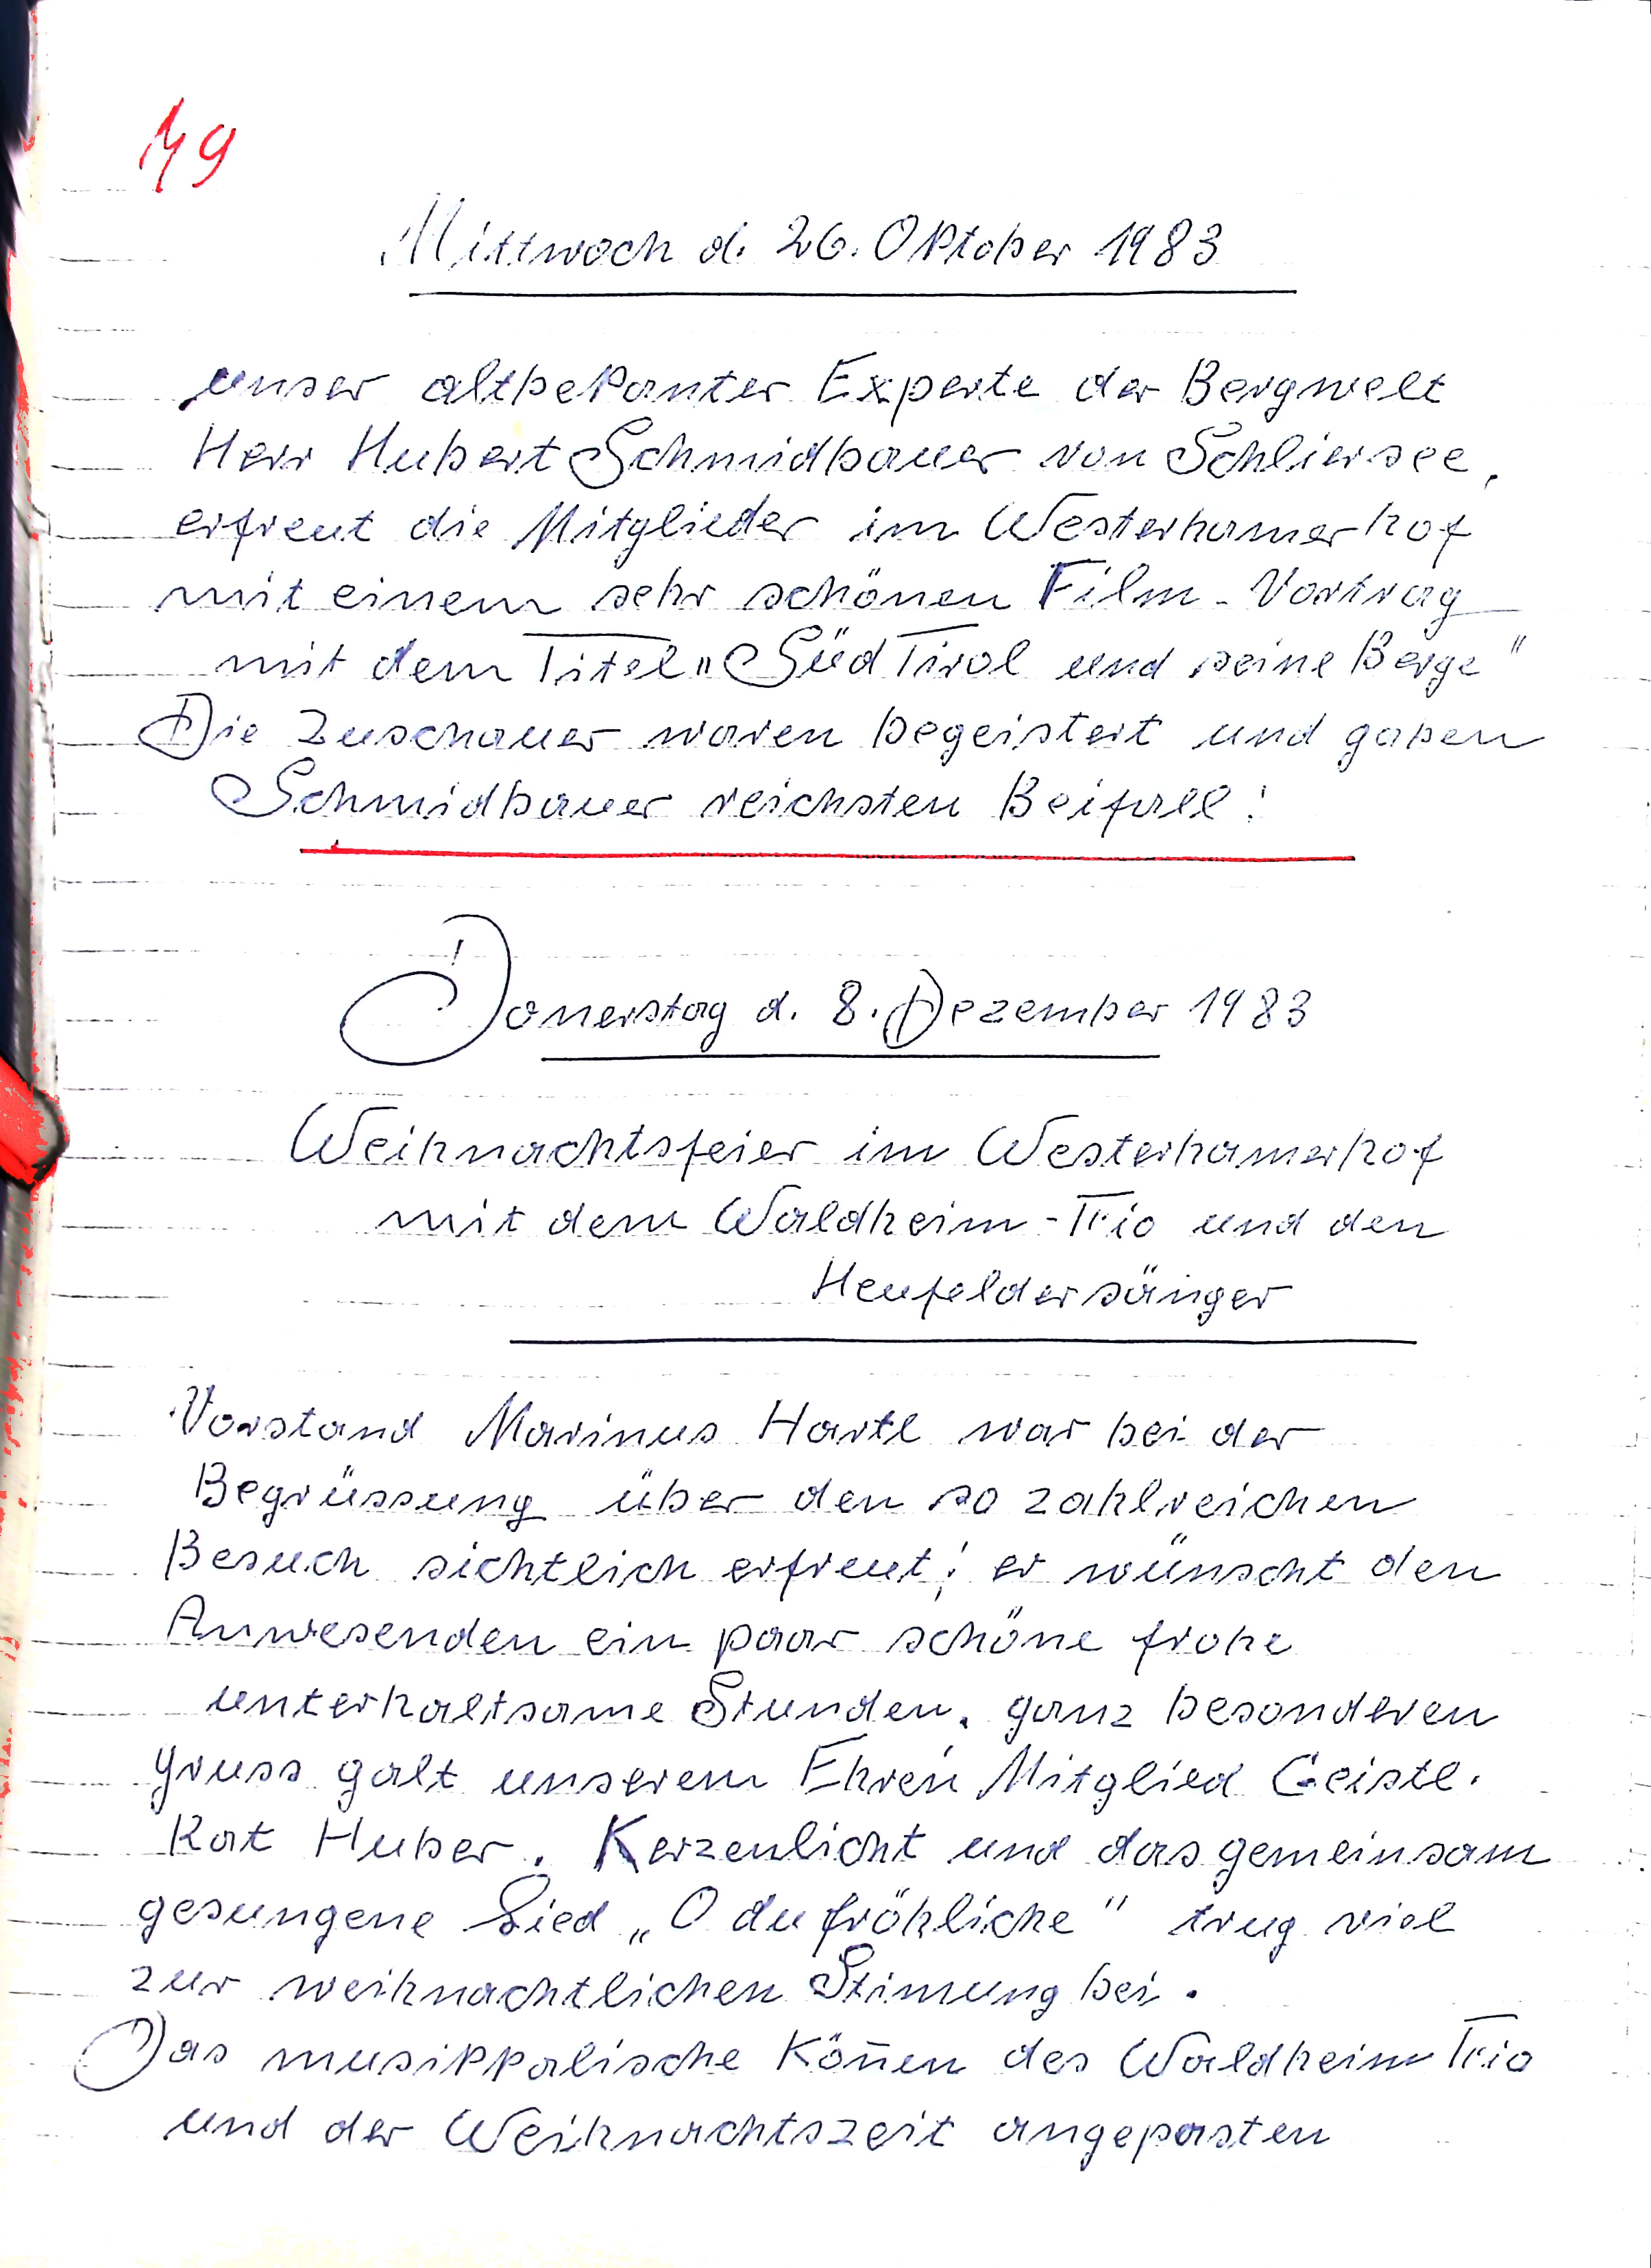 79
Mittwoch d. 26. Oktober 1983
unser altbekanter Experte der Bergwelt
Herr Hubert Schmidbauer von Schliersee,
erfreut die Mitglieder im Westerhamerhof
mit einem sehr schönen Film-Vortrag
mit dem Titel „Süd Tirol und seine Berge"
Die Zuschauer waren begeistert und gaben
Schmidbauer reichsten Beifall!
Donerstag d. 8. Dezember 1983
Weihnachtsfeier im Westerhamerhof
mit dem Waldheim-Trio und den
Heufeldersänger
Vorstand Marinus Hartl war bei der
Begrüssung über den so zahlreichen
Besuch sichtlich erfreut; er wünscht den
Anwesenden ein paar schöne frohe
unterhaltsame Stunden, ganz besonderen
gruss galt unserem Ehren Mitglied Geistl.
Rat Huber. Kerzenlicht und das gemeinsam
gesungene Lied „O du fröhliche" trug viel
zur weihnachtlichen Stimung bei.
Das musikkalische Kön̄en des Waldheim Trio
und der Weihnachtszeit angepasten